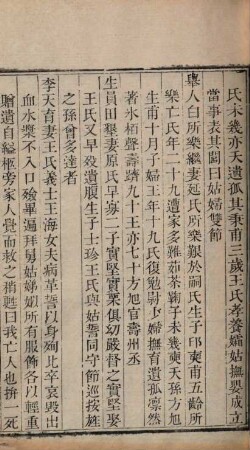 氏未幾亦夭遺孤其秉甫三歲王氏孝養孀姑撫嬰成立
當事表其閭曰姑婦雙節
舉人白所樂繼妻延氏所樂艱於嗣氏生子印奭甫五齡所
樂亡氏年二十九遺家多難茹茶鞠子未幾奭夭孫方旭
生甫十月子婦王年十九氏復勉尉少婦撫育遺孤凛然
著氷栢聲壽躋九十王亦七十方旭官壽州丞
生員田墾妻原氏早寡二子實堅實栗俱幼嚴督之實堅娶
王氏又早殁遺腹生子士珍王氏與姑誓同守節巡按旌
之孫曾多達者
李天育妻王氏義士王海女夫病革誓以身殉比卒哀毀出
血水漿不入口殮畢遍拜舅姑娣姒所有服飾各以輕重
贈遺自縊柩旁家人覺而救之稍甦曰我亡人也拚一死